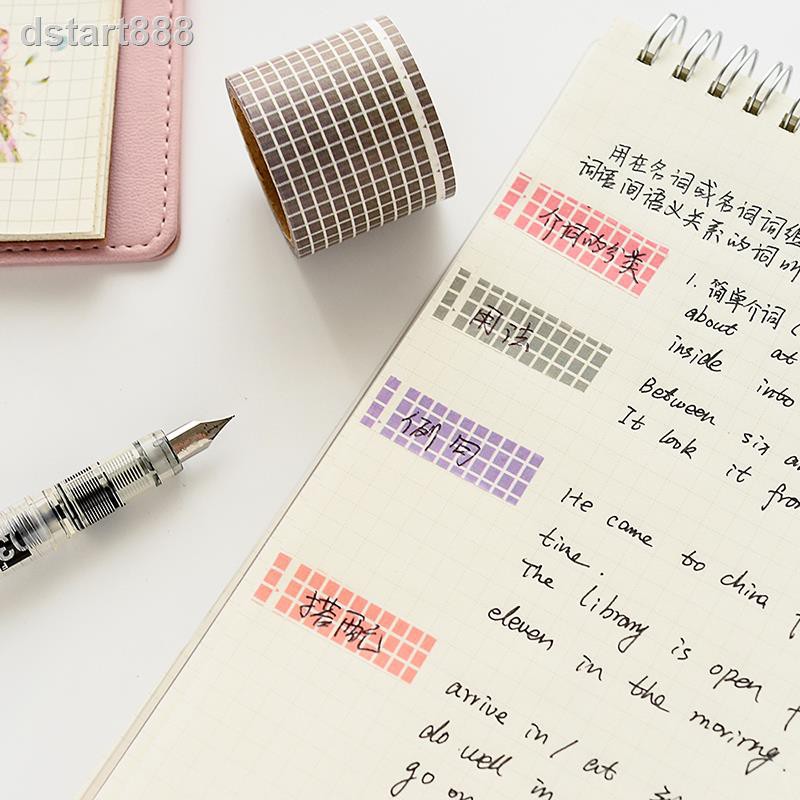 dstart888
用在名词或名词词组
词语间语义关系的词叫
介词的分类
1. 简单介词(
about at
inside into
用法
Between six a
It look it fro
例句
He came to china
time.
The library is open
eleven in the morirng.
搭配
arrive in/ at
do well in
go on